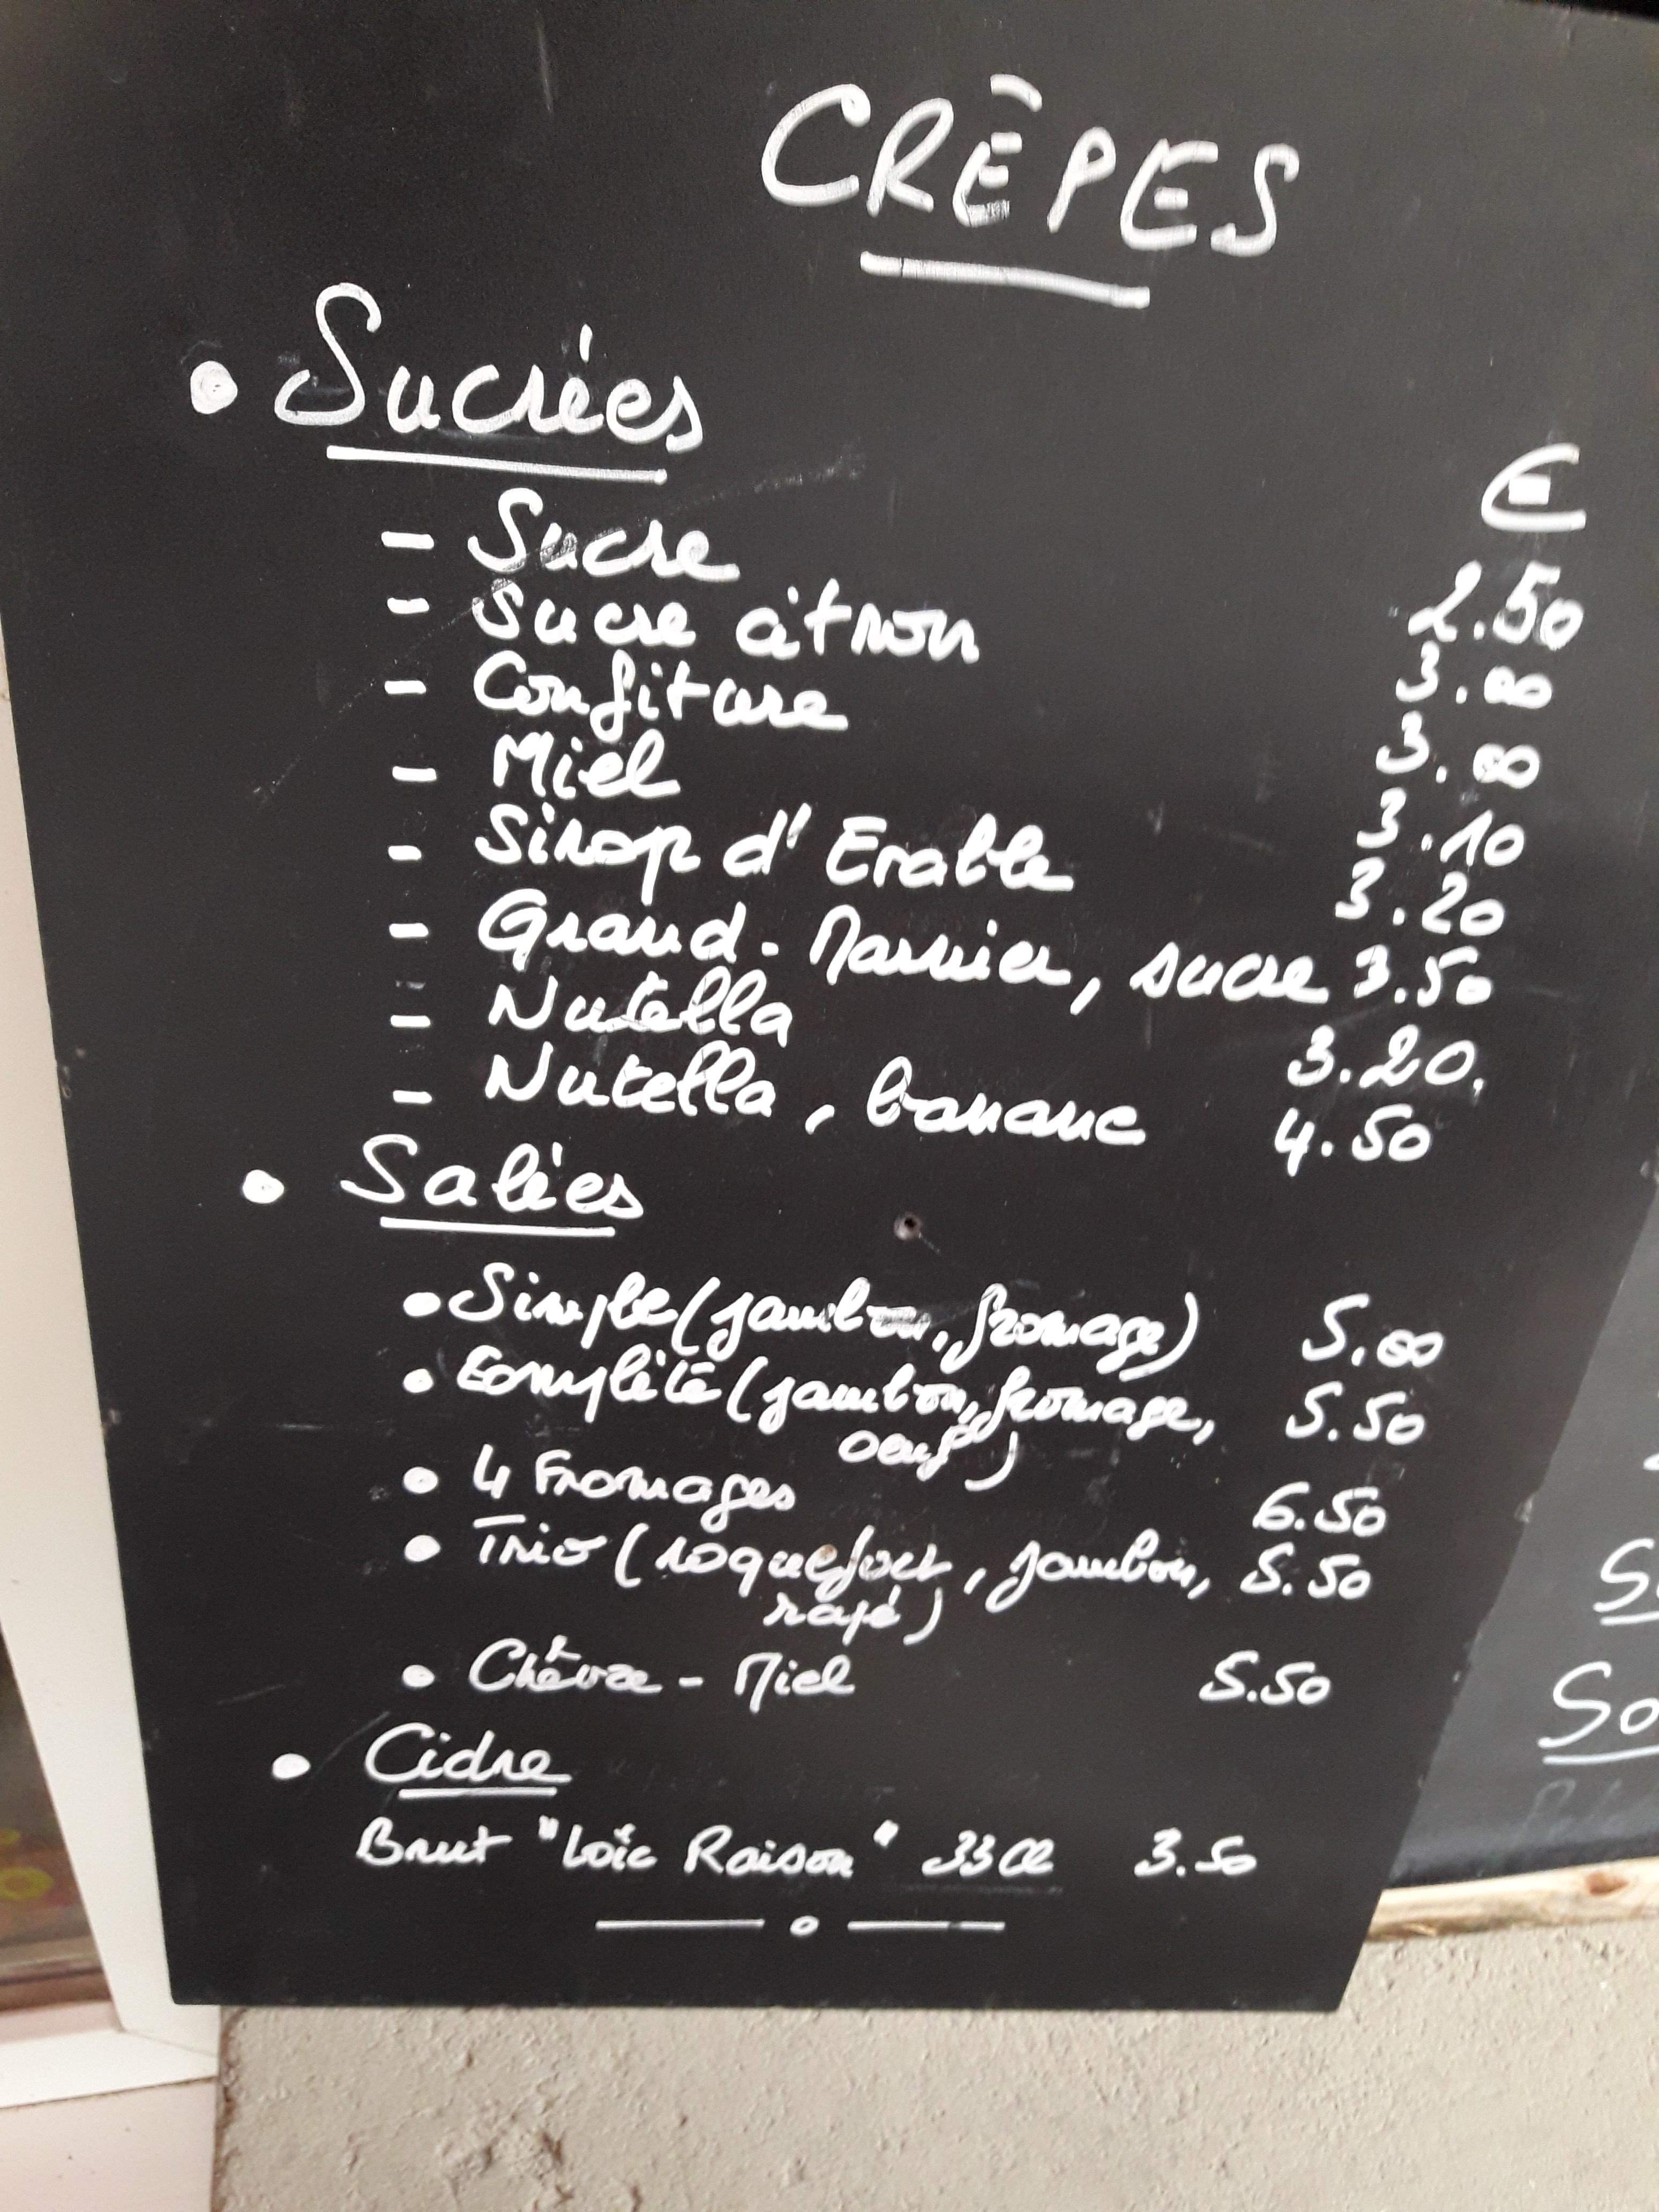 CRÊPES
• Sucrées
€
- Sucre 2.50
- Sucre citron 3.00
- Confiture 3.00
- Miel 3.10
- Sirop d'Erable 3.20
- Grand-Marnier, sucre 3.50
- Nutella 3.20
- Nutella, banane 4.50
• Salées
• Simple (jambon, fromage) 5.00
• Complète (jambon, fromage, 5.50
oeuf)
• 4 Fromages 6.50
• Trio (roquefort, jambon, 5.50
rapé)
• Chèvre - Miel 5.50
• Cidre
Brut "Loïc Raison" 33 Cl 3.50
So